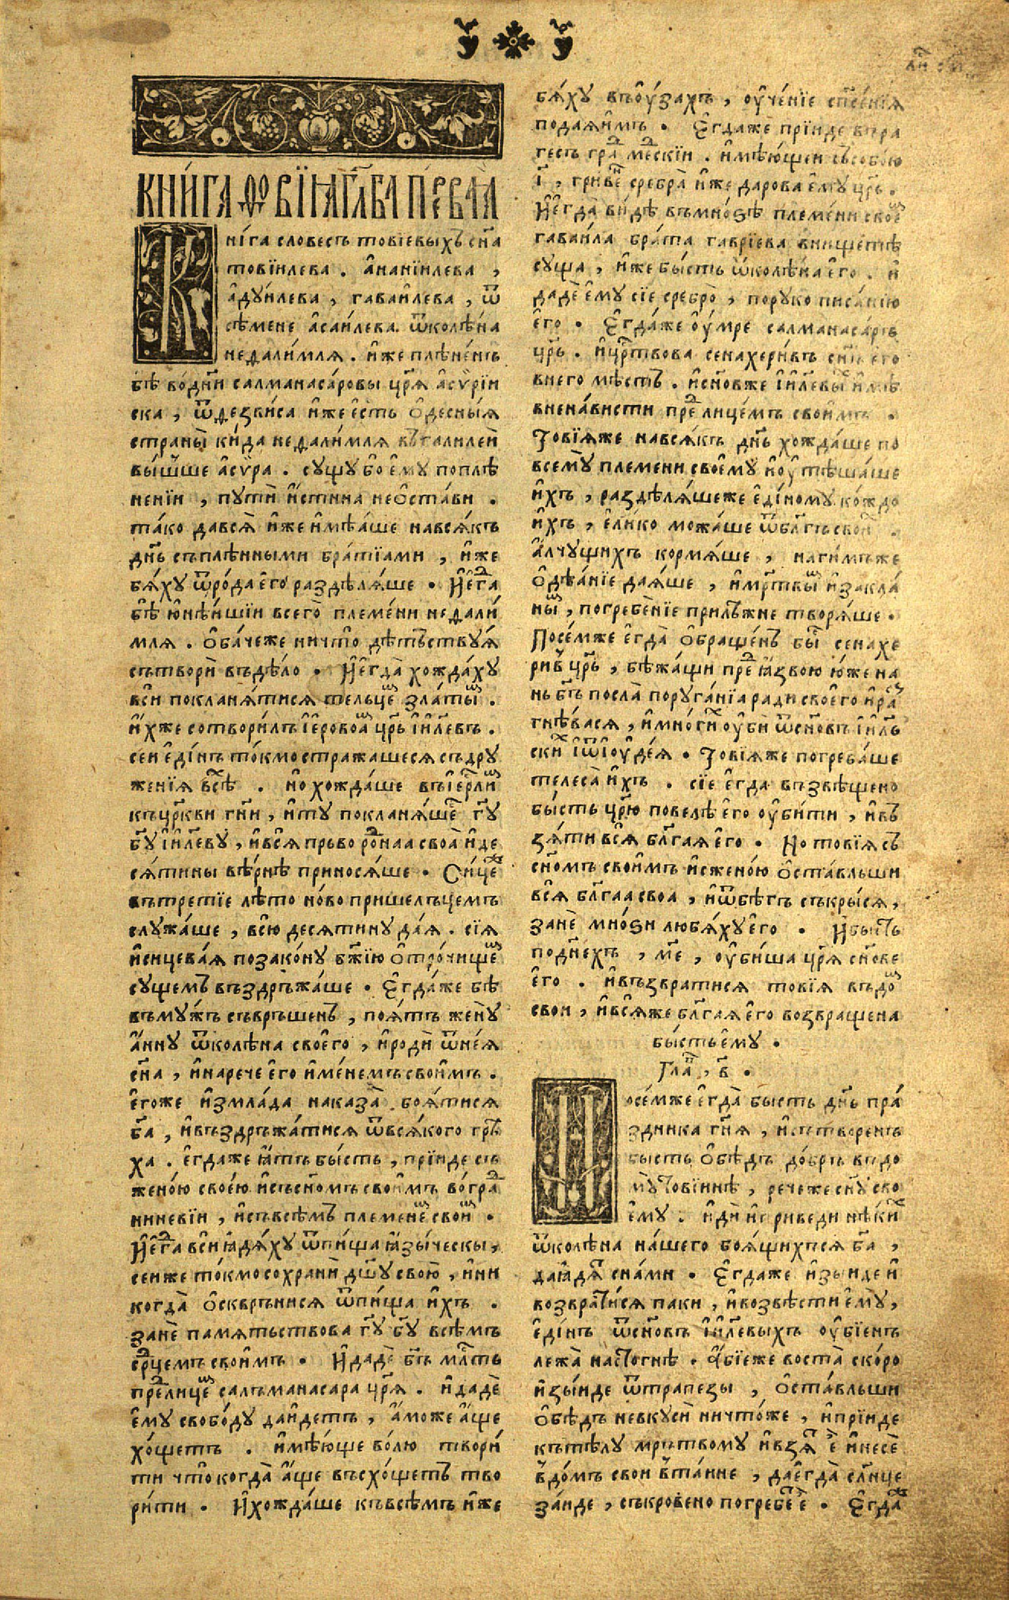 КНИ́ГА ТОВІ́И ГЛАВА ПЕ́РВАА
Кни́га слове́съ то́віевыхъ сн҃а
товіи́лева . а҆наніи́лева ,
а҆дуи́лева , гаваи́лева , ѿ
сѣ́мене а҆саи́лева ѿколѣ́на
недали́мля . и҆́же плѣне́нъ
бѣ̀ во́дни салманаса́ровы цр҃ѧ̀ а҆сѷрі́и
ска , ѿдезвиса и҆́же е҆́сть ѻ҆десны́ѧ
страны̀ ки́да недали́мля въгалиле́и
вы́шше а҆сѵ́ра . сущу бо е҆му̀ поплѣ
не́нїи , пути̂ и҆́стинна неѻ҆ста́ви .
та́ко давсѧ̀ и҆́же и҆мѣѧше навсѧ́къ
дн҃ь съплѣ́нными бра́тїами , и҆́же
бѧ́ху ѿро́да е҆го̀ раздѣлѧ́ше . И҆е҆гда̀
бѣ̀ ю҆нѣ́ишіи всего̀ пле́мени недали́
мля . ѻ҆ба́чеже ничто̀ дѣ́тьствуѧ
сътворѝ въдѣ́ло . И҆е҆гда̀ хожда́ху
всѝ покланѧ́тисѧ тельце́мъ златы́мъ .
и҆́хже сотвори́лъ і҆е҆ровоа́мъ цр҃ь і҆и҃левъ .
сеи е҆ди́нъ то́кмо стража́шесѧ съдру
же́нїѧ всѣ́хъ . но хожда́ше въі҆ерⷭ҇ли́мъ
къцр҃кви гн҃и , и҆ту покланѧ́ше гд҃у
бг҃у і҆и҃леву , и҆всѧ̀ прьворо́днаа своѧ̀ и҆де
сѧти́ны вѣ́рнѣ приноса́ше . Си́це же
вътре́тїе лѣ́то но́во прише́льцемъ
служа́ше , всю̀ десѧти́ну даѧ̀ . сїѧ̀
и҆сицева́ѧ позако́ну бж҃їю ѻ҆тро́чищемъ
су́щемъ въздръжа́ше . Е҆гда́же бѣ̀
въму́жъ съврьше́нъ , поѧ́тъ жену̀
а҆́нну ѿколѣ́на своего̀ , и҆родѝ ѿнеѧ̀
сн҃а , и҆нарече е҆го̀ и҆́менемъ свои́мъ .
е҆гоже и҆змла́да наказа̀ боѧ́тисѧ
бг҃а , и҆въздръжа́тисѧ ѿвсѧ́кого грѣ
ха . е҆гда́же ꙗ҆́тъ бы́сть , прїи́де съ
жено́ю свое́ю и҆съсн҃омъ свои́мъ во́градъ
ниневїи , и҆съвсѣ́мъ пле́менемъ свои́мъ .
И҆е҆гда̀ всѝ ꙗ҆дѧ́ху ѿпи́ща ꙗ҆зы́ческы ,
се́иже то́кмо сохранѝ дш҃у свою̀ , и҆ни
когда̀ ѻ҆сквръ́нисѧ ѿпи́ща и҆́хъ .
занѐ па́мѧтьствова гд҃у бг҃у всѣ́мъ
ср҃цемъ свои́мъ . И҆дадѐ бг҃ъ млⷭ҇ть
предлице́мъ салъманаса́ра цр҃ѧ̀ . и҆дадѐ
е҆му свобо́ду даи́детъ , а҆́може а҆́ще
хо́щетъ . и҆мѣ́юще во́лю твори́
ти что̀ когда̀ а҆́ще въсхо́щетъ тво
ри́ти . И҆хожда́ше къвсѣ́мъ и҆́же
бѧ́ху въѹ҆за́хъ , ѹ҆че́нїе сп҃се́нїѧ
подаѧ́имъ . Е҆гда́же прїи́де въра
ге́съ гра́дъ ме́дескїи . и҆мѣ́ющеи съсобо́ю
і҃ , гри́венъ сребра̀ и҆́же дарова е҆му̀ цр҃ь .
И҆е҆гда̀ ви́дѣ въмно́ѕѣ пле́мени свое́мъ
гаваи́ла бра́та гаврі́ева внищетѣ̀
су́ща , и҆́же бы́сть ѿколѣ́на е҆го̀ . и҆
дадѐ е҆му̀ сїе сребро̀ , пору́ко писа́нїю
е҆го̀ . Е҆гда́же ѹ҆мре салманаса́ръ
цр҃ь . и҆црⷭ҇твова сенахери́въ сн҃ъ е҆го̀
внего мѣ́стъ . и҆сн҃овже і҆и҃левы́хъ и҆мѣ̀
вне́нависти предлице́мъ свои́мъ .
Товїѧже навсѧ́къ дн҃ь хожда́ше по
всему̀ пле́мени своему̀ и҆ѹ҆тѣша́ше
и҆́хъ , раздѣлѧ́шеже е҆ди́ному ко́ждо
и҆́хъ , е҆ли́ко можа́ше ѿбл҃гъ свои́хъ .
а҆́лчущихъ кормѧ́ше , наги́мъже
ѻ҆дѣѧ́нїе даѧ́ше , и҆мр҃твы́мъ и҆закла́
ны́мъ , погребе́нїе прилѣ́жне творѧ́ше .
Посе́мже е҆гда̀ ѻ҆браще́нъ бы́сть сенахе
ри́въ цр҃ь , бѣжа́щи предꙗ҆звою ю҆́же на
нь бг҃ъ посла̀ поруга́нїа ради своего̀ и҆ра́з
гнѣ́васѧ , и҆мно́гихъ ѹ҆би ѿсн҃овъ і҆и҃ль
скихъ і҆ѿі҆ѹде́ѧ . Товїѧже погреба́ше
телеса̀ и҆́хъ . сїѐ е҆гда̀ възвѣщено
бы́сть цр҃ю повелѣ̀ е҆го̀ ѹ҆би́ти , и҆въ
зѧ́ти всѧ̀ бл҃гаѧ е҆го̀ . Но товїѧ съ
сн҃омъ свои́мъ и҆сжено́ю ѻ҆ста́вльши
всѧ̀ бл҃гаа своѧ , и҆ѿбѣ́гъ съкры́сѧ ,
занѐ мно́ѕи любѧ́ху е҆го̀ . И҆бы́сть
поднехъ , м҃е , ѹ҆би́ша цр҃ѧ̀ сн҃ове
е҆го̀ . и҆възврати́сѧ товїѧ въдо́мъ
свои , и҆всѧ́же бл҃гаѧ е҆го̀ возвращена
бы́сть е҆му̀ .
Гла̀ , в҃ .
Посе́мже е҆гда̀ бы́сть дн҃ь пра́
здника гн҃ѧ , и҆сътворе́нъ
бы́сть ѻ҆бѣ́дъ до́бръ въдо
му̀ Товїинѣ , рече́же сн҃у сво
е҆му . и҆дѝ и҆приведѝ нѣ́кихъ
ѿколѣ́на на́шего боѧ́щихсѧ бг҃а ,
даꙗ҆дѧ́тъ сна́ми . Е҆гда́же и҆зы́иде и҆
возврати́сѧ паки , и҆возвѣстѝ е҆му̀ ,
е҆ди́нъ ѿсн҃овъ і҆и҃левыхъ ѹ҆бїе́нъ
лежа̀ настогнѣ̀ . а҆́бїеже воста̀ ско́ро
и҆зы́иде ѿтрапе́зы , ѻ҆ста́вльши
ѻ҆бѣ́дъ невкусѝ ничто́же , и҆прїи́де
къ тѣ́лу мр҃ътвому и҆взѧ́тъ е҆̀ и҆несѐ
в҆до́мъ свои в҆та́ине , дае҆гда̀ сл҃нце
за́иде , съкрове́но погребе́тъ е҆̀ . Е҆гда́же